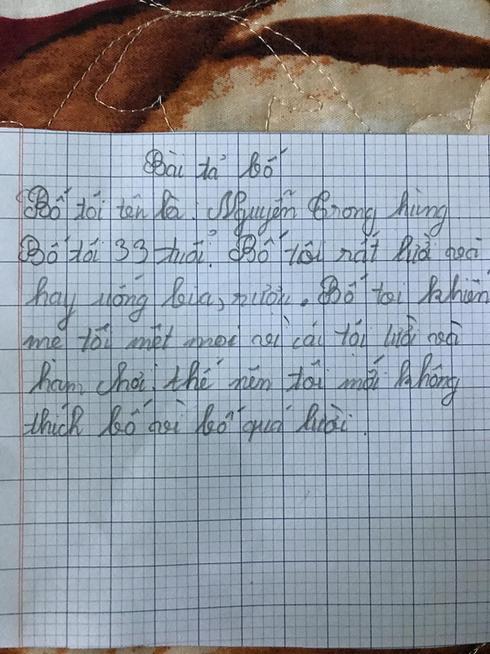 Bài tả bố
Bố tôi tên là: Nguyễn Trong hùng
Bố tôi 33 tuổi. Bố tôi rất lười và
hay uống bia, rượu. Bố tôi khiến
mẹ tôi mệt mỏi vì cái tội lười và
ham chơi. thế nên tôi mới không
thích bố vì bố quá lười.